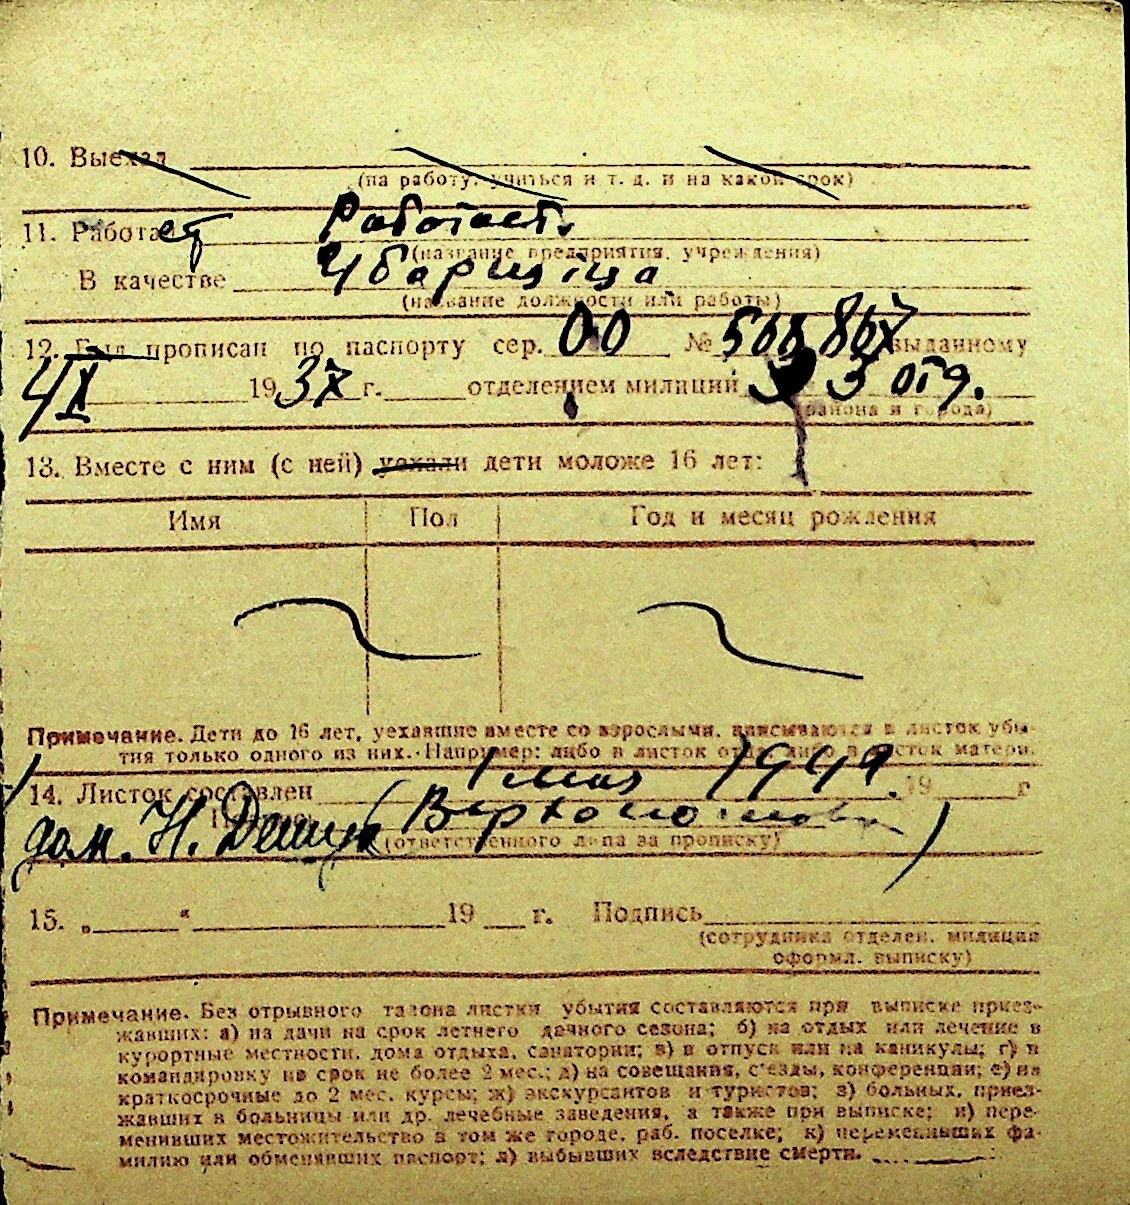 10. Выехал
(на работу, учиться и т. д. и на какой срок)
11. Работает Работает.
(название предприятия, учреждения)
В качестве Уборщица
(название должности или работы)
12. Был прописан по паспорту сер. 00 № выданному
4 X 1937 г. отделением милиции 3 отд.
(района и города)
13. Вместе с ним (с ней) уехали дети моложе 16 лет:
Имя Пол Год и месяц рождения
Примечание. Дети до 16 лет, уехавшие вместе со взрослыми, вписываются в листок убы-
тия только одного из них. Например: либо в листок отца, либо в листок матери.
14. Листок составлен 1 мая 1941. 19 г
дом. Н. (
(ответственного лица за прописку)
15. „ “ 19 г. Подпись
(сотрудника отделен. милиции
оформл. выписку)
Примечание. Без отрывного талона листки убытия составляются при выписке приез-
жавших: а) на дачи на срок летнего дачного сезона; б) на отдых или лечение в
курортные местности, дома отдыха, санатории; в) в отпуск или на каникулы; г) в
командировку на срок не более 2 мес.; д) на совещания, с'езды, конференции; е) на
краткосрочные до 2 мес. курсы; ж) экскурсантов и туристов; з) больных, приез-
жавших в больницы или др. лечебные заведения, а также при выписке; и) пере-
менивших местожительство в том же городе, раб. поселке; к) переменивших фа-
милию или обменявших паспорт; л) выбывших вследствие смерти.